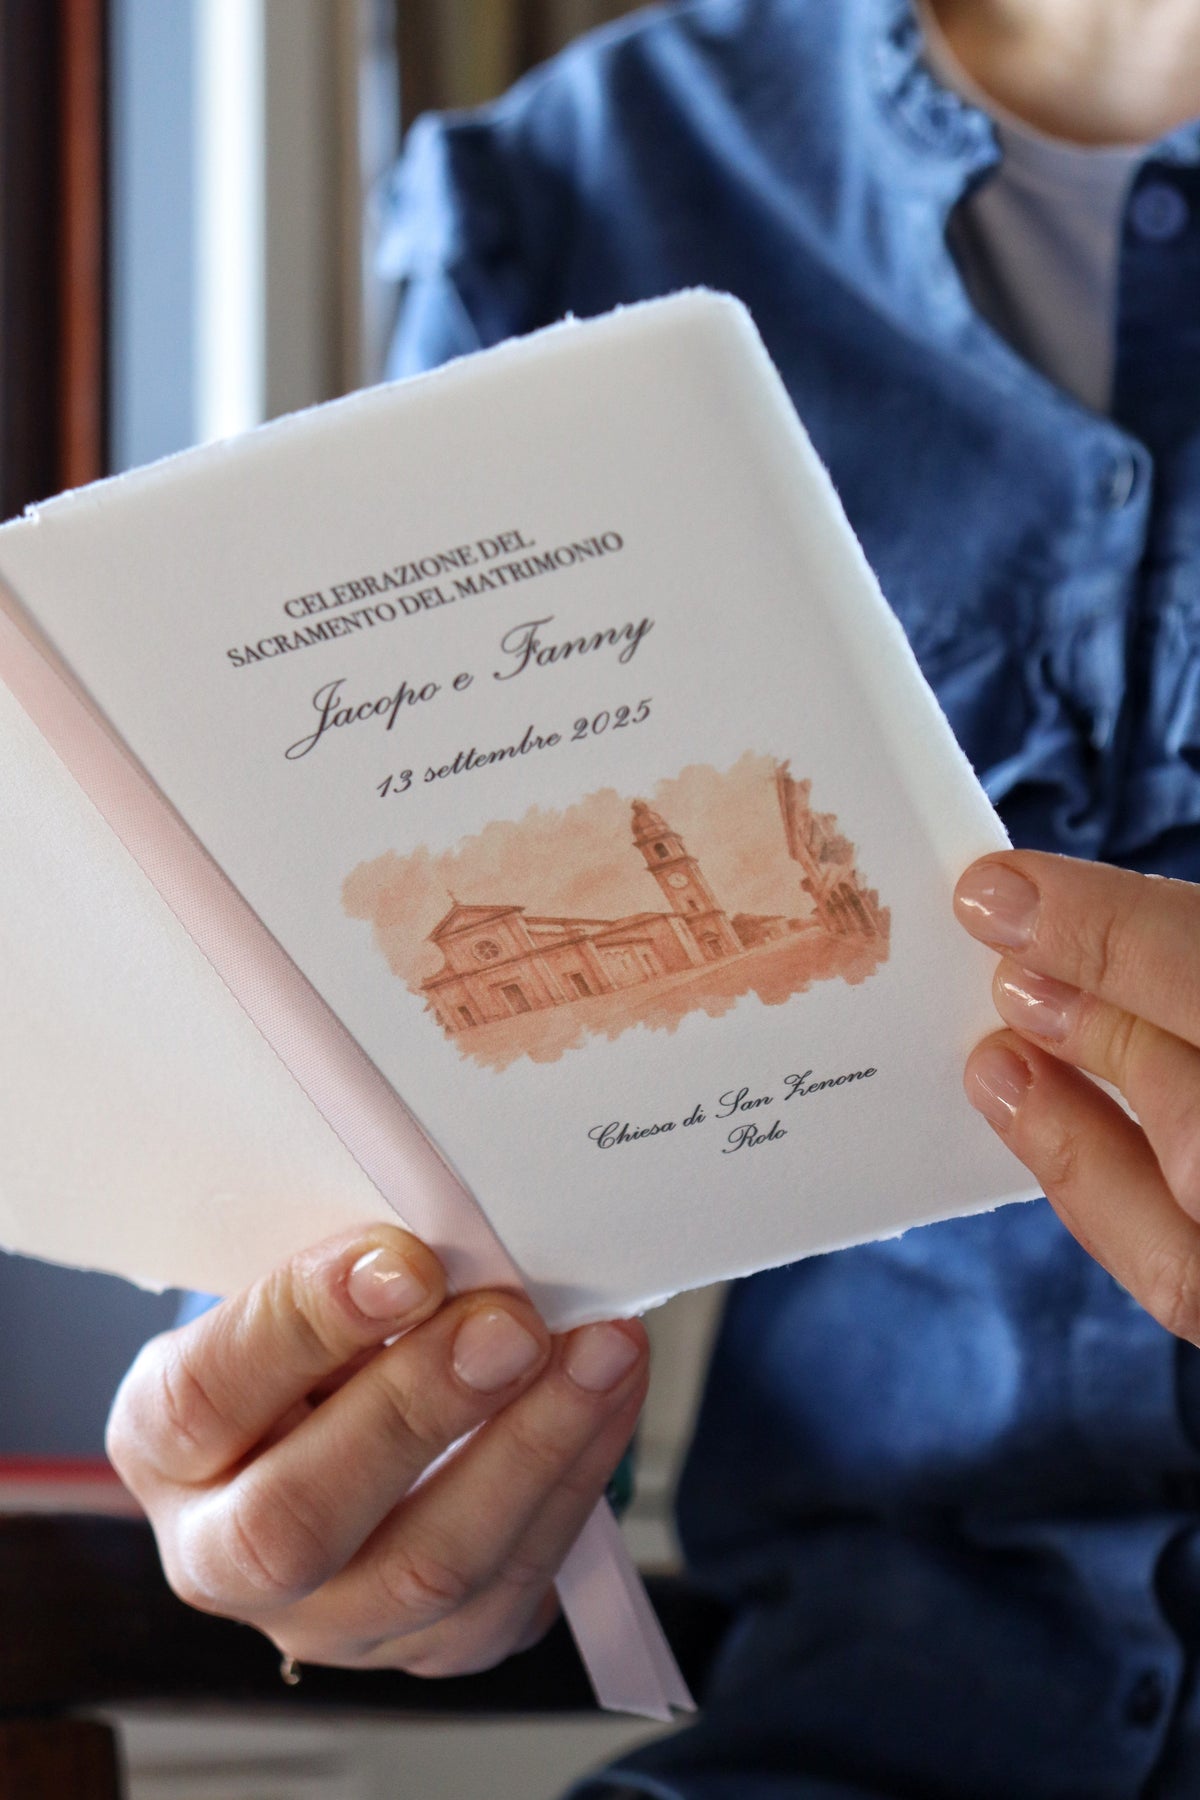 CELEBRAZIONE DEL
SACRAMENTO DEL MATRIMONIO
Jacopo e Fanny
13 settembre 2025
Chiesa di San Zenone
Rolo